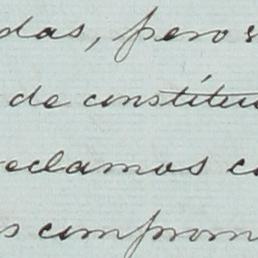 das, pero s
de constitu
reclamos co
s comprom